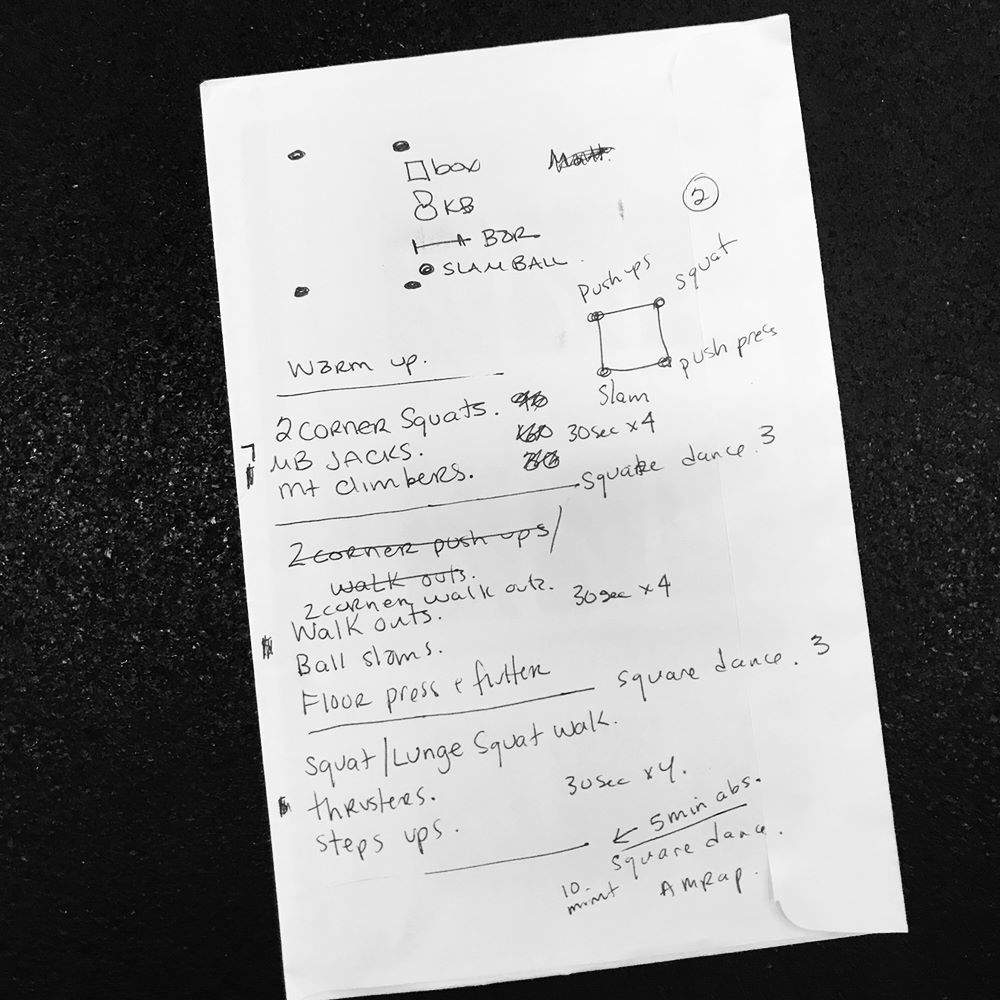 box
KB
BAR
SLAMBALL
2
Push ups
squat
push press
Slam
Warm up.
2 CORNER Squats.
MB JACKS.
30sec x4
Mt climbers.
square dance. 3
2 corner push ups/
walk outs.
2 corner walk outs.
30sec x4
Walk outs.
Ball slams.
Floor press & flutter
square dance. 3
Squat/Lunge Squat walk.
thrusters.
30sec x4.
steps ups.
← 5min abs.
square dance.
10.
AMRAP.